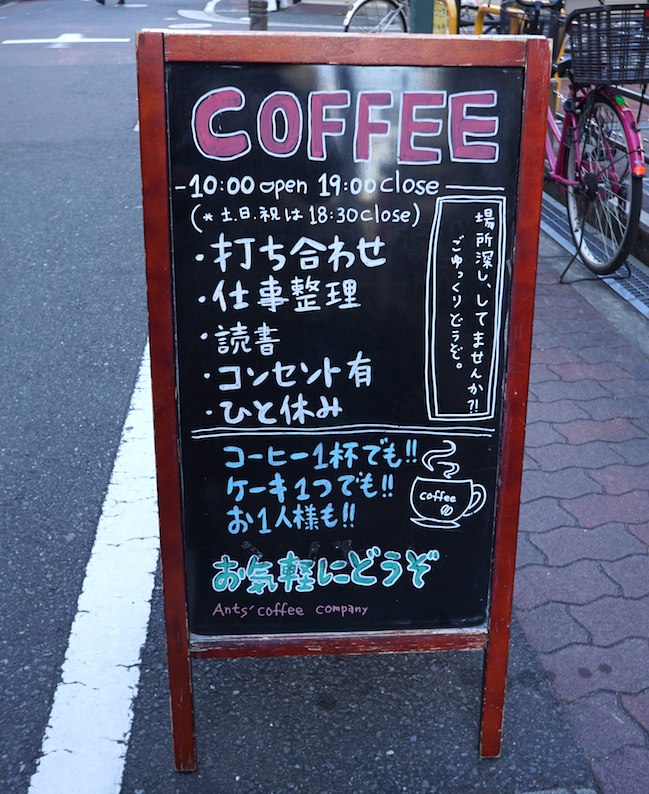 COFFEE
-10:00 open 19:00 close
(*土日.祝は18:30 close)
・打ち合わせ
・仕事整理
・読書
・コンセント有
・ひと休み
場所深し、してませんか?!
ごゆっくりどうぞ。
コーヒー1杯でも!!
ケーキ1つでも!!
お1人様も!!
coffee
お気軽にどうぞ
Ants' coffee company